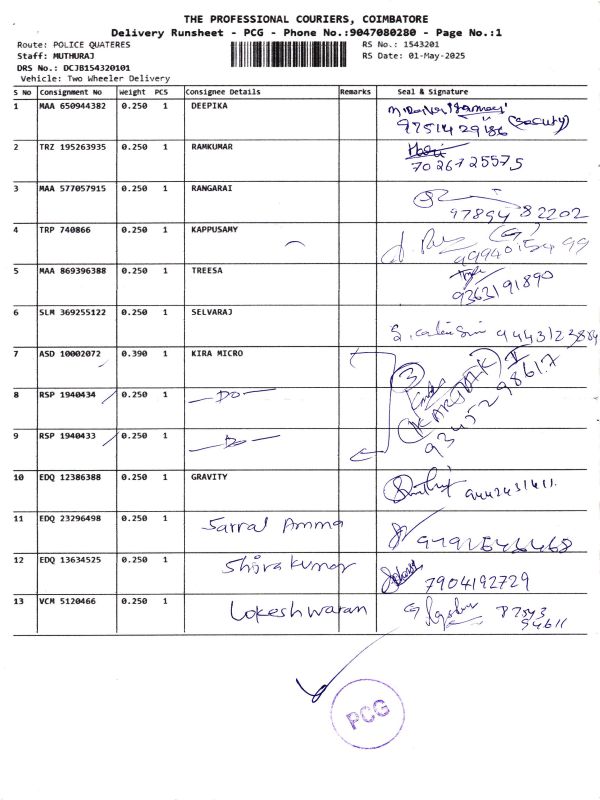 THE PROFESSIONAL COURIERS, COIMBATORE
Delivery Runsheet - PCG - Phone No.:9047080280 - Page No.:1
Route: POLICE QUATERES RS No.: 1543201
Staff: MUTHURAJ RS Date: 01-May-2025
DRS No.: DCJB154320101
Vehicle: Two Wheeler Delivery
S No Consignment No Weight PCS Consignee Details Remarks Seal & Signature
1 MAA 650944382 0.250 1 DEEPIKA
9751429186
2 TRZ 195263935 0.250 1 RAMKUMAR Hari
7026725575
3 MAA 577057915 0.250 1 RANGARAI
97894 82202
4 TRP 740866 0.250 1 KAPPUSAMY
5 MAA 869396388 0.250 1 TREESA
9363191890
6 SLM 369255122 0.250 1 SELVARAJ
9443123884
7 ASD 10002072 0.390 1 KIRA MICRO 3
8 RSP 1940434 0.250 1 —DO— KARTHIK
9 RSP 1940433 0.250 1 —DO— 9345298617
10 EDQ 12386388 0.250 1 GRAVITY
9442431411
11 EDQ 23296498 0.250 1 Sarral Amma
12 EDQ 13634525 0.250 1 Shivakumar
7904192729
13 VCM 5120466 0.250 1 Lokeshwaran
PCG